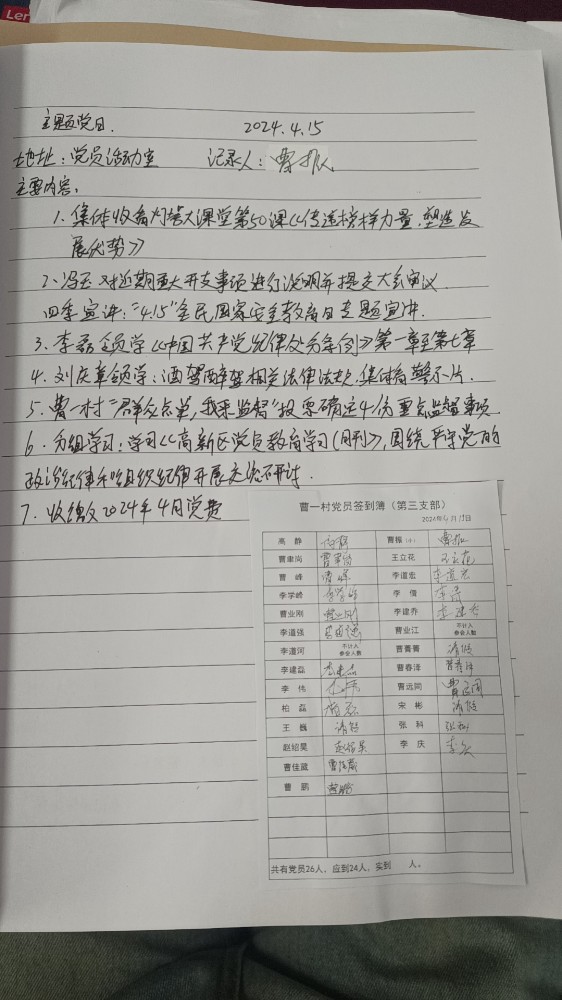 Ler
主题党日. 2024.4.15
地址：党员活动室 记录人：曹振
主要内容：
1. 集体收看灯塔大课堂第50课《传递榜样力量，塑造发
展优势》
2、冯玉 对近期重大开支事项进行说明并提交大会审议.
四季宣讲："4.15"全民国家安全教育日专题宣讲.
3. 李磊领学《中国共产党纪律处分条例》第一章至第七章
4. 刘庆章领学：酒驾醉驾相关法律法规,集体看警示片.
5. 曹一村"群众点单,我来监督"投票确定4月份重点监督事项
6. 分组学习：学习《高新区党员教育学习(月刊)》,围绕严守党的
政治纪律和组织纪律开展交流研讨.
7. 收缴2024年4月党费
曹一村党员签到簿（第三支部）
2024年4月15日
高 静 高静 曹振（小） 曹振
曹聿尚 曹聿尚 王立花 王立花
曹 峰 曹峰 李道宏 李道宏
李学峰 李学峰 李 倩 李倩
曹业刚 曹业刚 李建乔 李建乔
李道强 李道强 曹业江 不计入
参会人数
李道河 不计入
参会人数 曹菁菁 请假
李建磊 李建磊 曹春泽 曹春泽
李 伟 李伟 曹远同 曹远同
柏 磊 柏磊 宋 彬 请假
王 巍 请假 张 科 张科
赵绍昊 赵绍昊 李 庆 李庆
曹佳葳 曹佳葳
曹 鹏 曹鹏
共有党员26人、应到24人，实到 人。